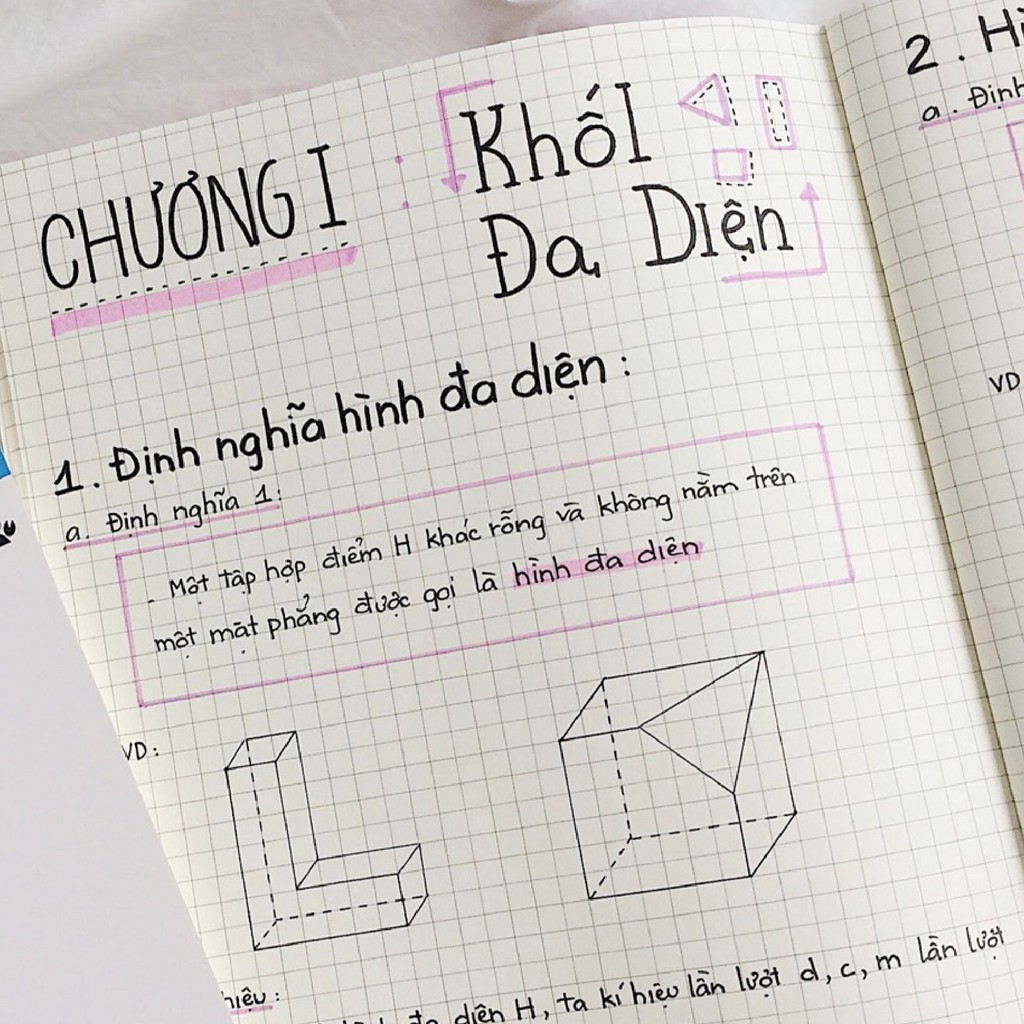 CHƯƠNG I : Khối
Đa Diện
1. Định nghĩa hình đa diện :
a. Định nghĩa 1:
- Một tập hợp điểm H khác rỗng và không nằm trên
một mặt phẳng được gọi là hình đa diện
VD :
đa diện H, ta kí hiệu lần lượt d, c, m lần lượt
2. H
a.
VD